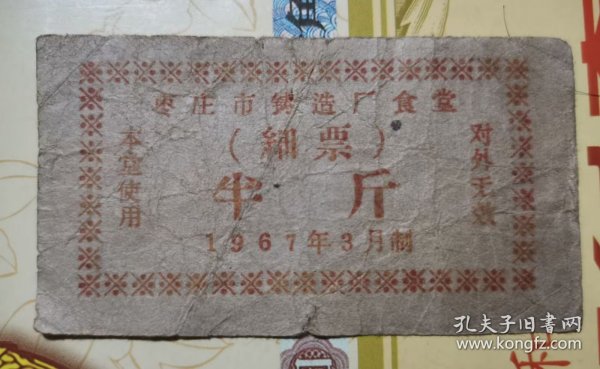 枣庄市铸造厂食堂
（细票）
本堂使用
半斤
对外无效
1967年3月制
孔夫子旧书网
www.kongfz.com